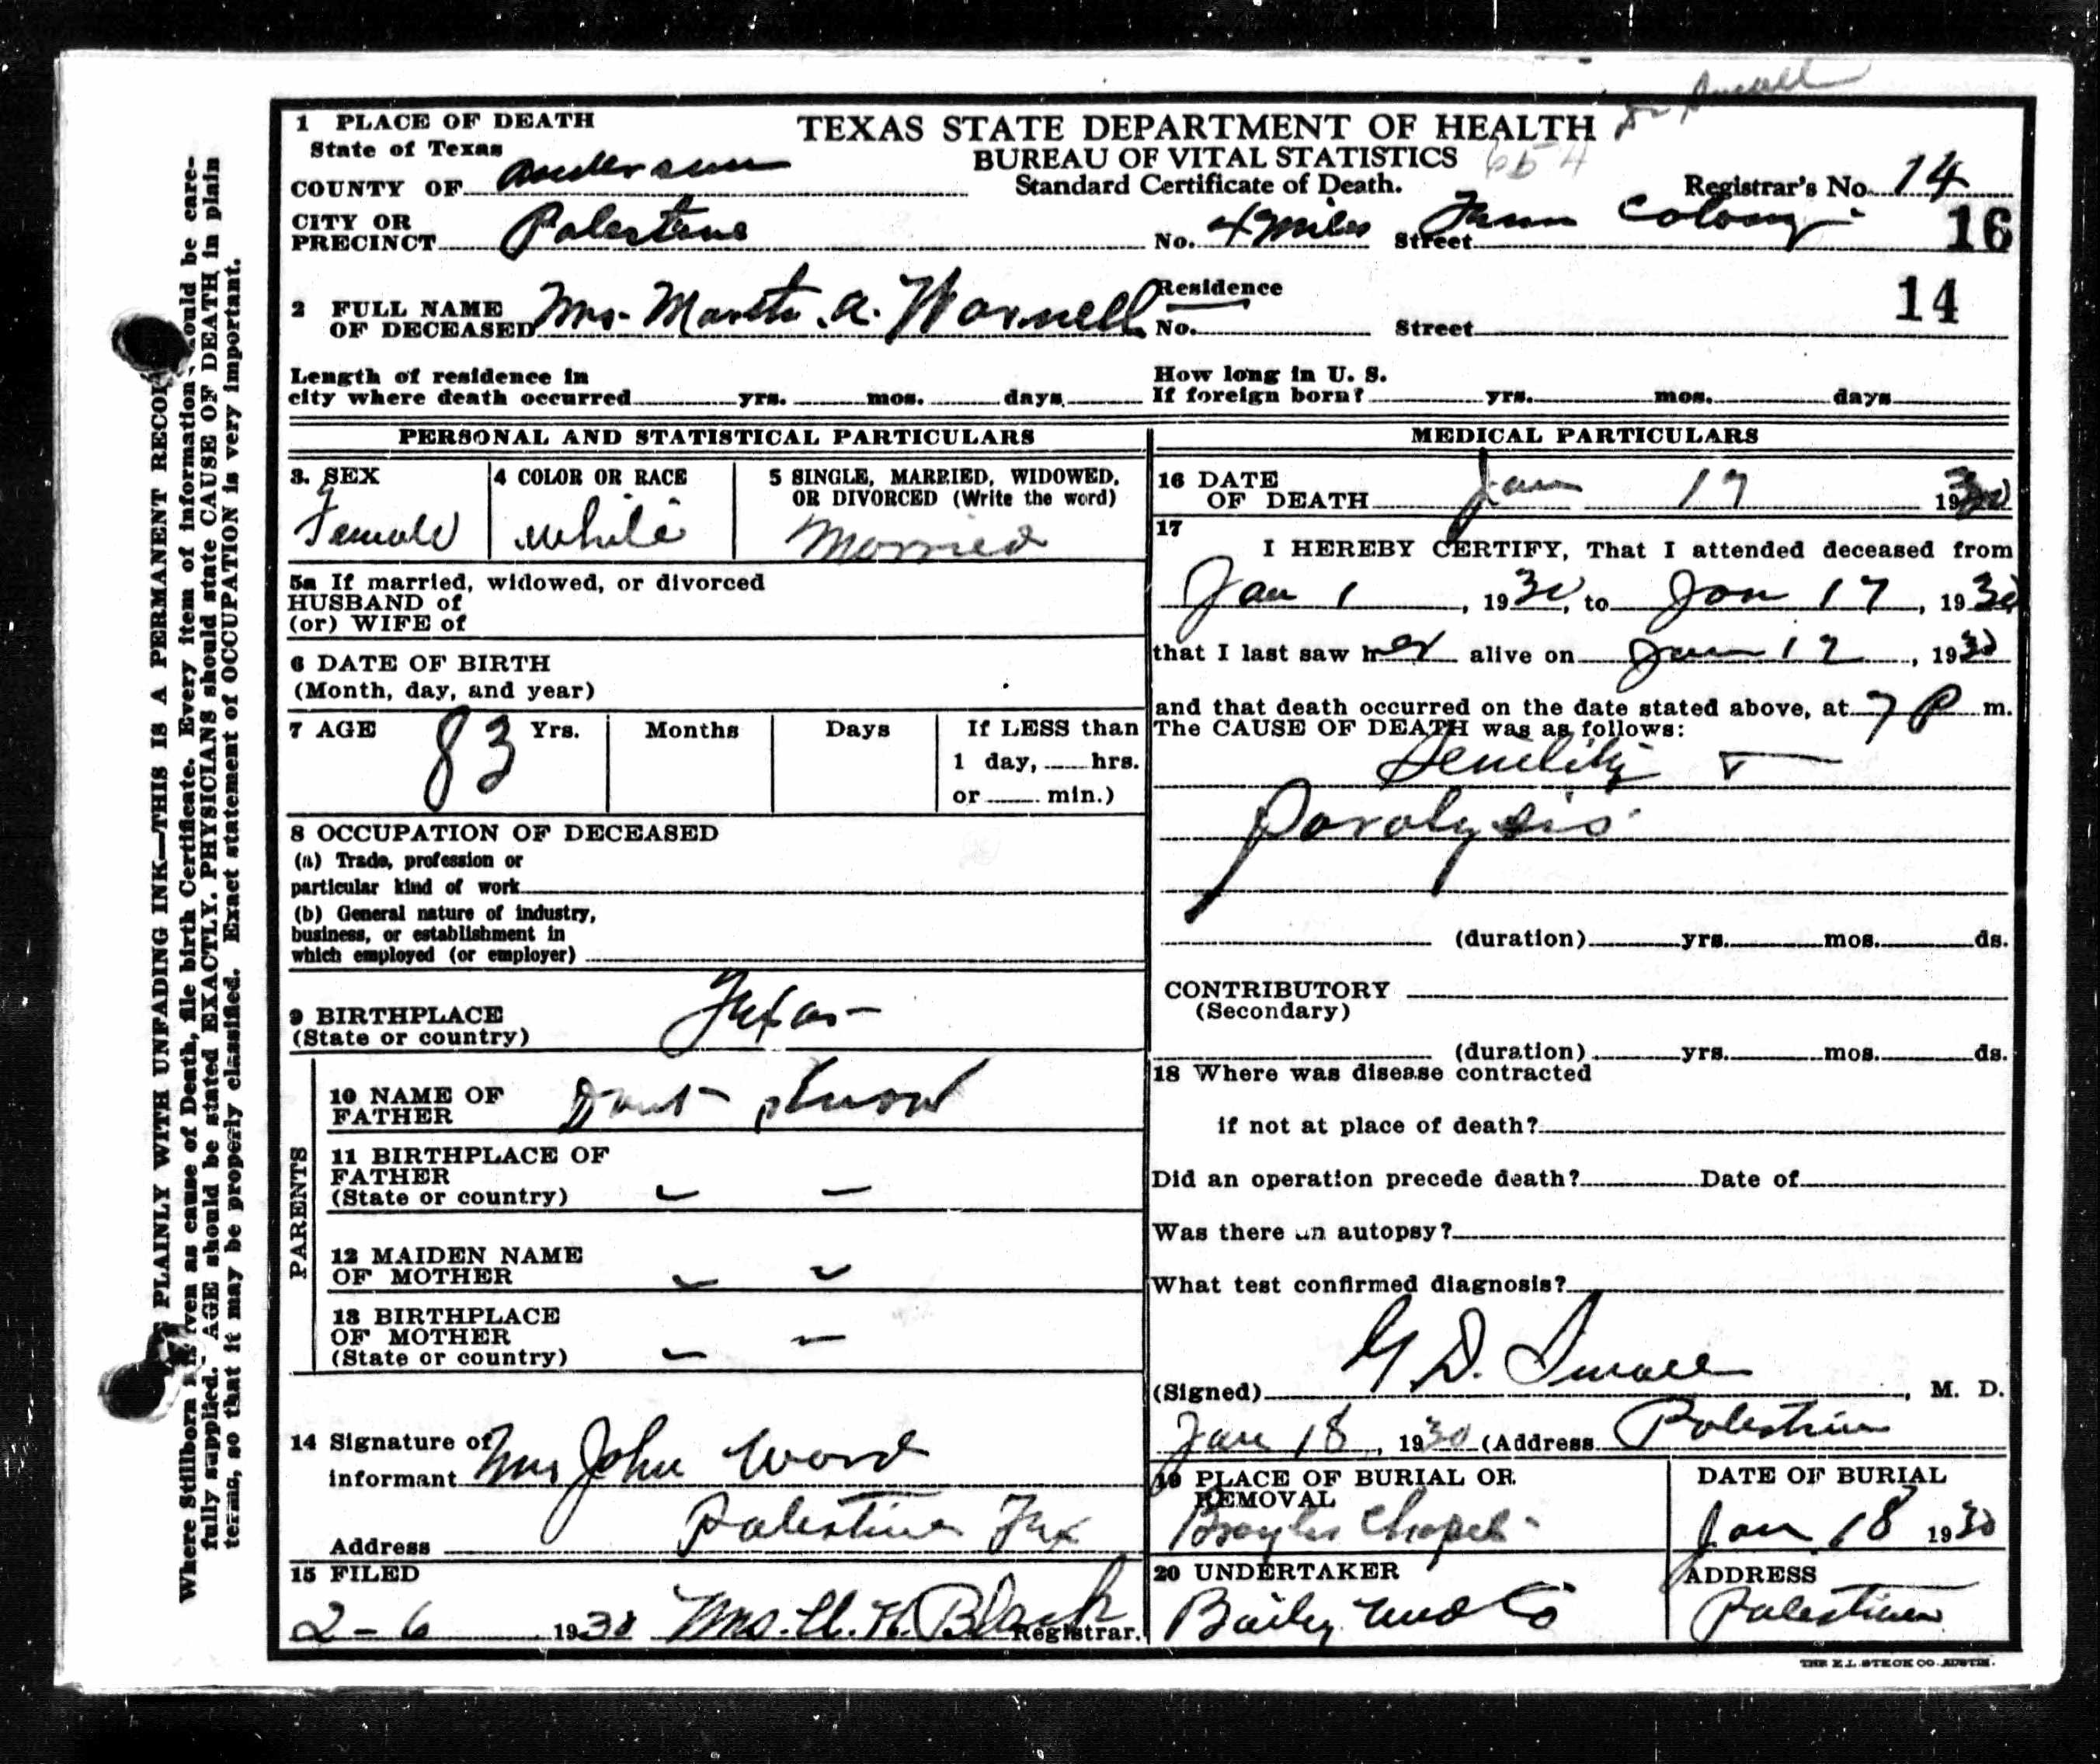 TEXAS STATE DEPARTMENT OF HEALTH
BUREAU OF VITAL STATISTICS
Standard Certificate of Death.
1 PLACE OF DEATH
State of Texas
COUNTY OF Anderson
Registrar's No. 14
CITY OR
PRECINCT Palestine No. 4 miles Street Tenn Colony
16
2 FULL NAME
OF DECEASED Mrs. Marth. A. Wornell
Residence
No. Street
14
Length of residence in
city where death occurred yrs. mos. days
How long in U. S.
If foreign born? yrs. mos. days
PERSONAL AND STATISTICAL PARTICULARS
3. SEX
Female
4 COLOR OR RACE
White
5 SINGLE, MARRIED, WIDOWED,
OR DIVORCED (Write the word)
Married
5a If married, widowed, or divorced
HUSBAND of
(or) WIFE of
6 DATE OF BIRTH
(Month, day, and year)
7 AGE 83 Yrs. Months Days If LESS than
1 day, hrs.
or min.)
8 OCCUPATION OF DECEASED
(a) Trade, profession or
particular kind of work
(b) General nature of industry,
business, or establishment in
which employed (or employer)
9 BIRTHPLACE
(State or country) Texas
PARENTS
10 NAME OF
FATHER Dont Know
11 BIRTHPLACE OF
FATHER
(State or country) - -
12 MAIDEN NAME
OF MOTHER - -
13 BIRTHPLACE
OF MOTHER
(State or country) - -
14 Signature of
informant Mrs John Word
Address Palestine Tex
15 FILED
2-6 1930 Mrs. H. Black Registrar.
MEDICAL PARTICULARS
16 DATE
OF DEATH Jan 17 1930
17
I HEREBY CERTIFY, That I attended deceased from
Jan 1, 1930, to Jan 17, 1930
that I last saw her alive on Jan 17, 1930
and that death occurred on the date stated above, at 7 P m.
The CAUSE OF DEATH was as follows:
Senility
Paralysis
(duration) yrs. mos. ds.
CONTRIBUTORY
(Secondary)
(duration) yrs. mos. ds.
18 Where was disease contracted
if not at place of death?
Did an operation precede death? Date of
Was there an autopsy?
What test confirmed diagnosis?
(Signed) , M. D.
Jan 18, 1930 (Address Palestine
19 PLACE OF BURIAL OR
REMOVAL
Broyles Chapel
DATE OF BURIAL
Jan 18 1930
20 UNDERTAKER
Baily Und Co
ADDRESS
Palestine
THE E.L. STECK CO. AUSTIN.
PLAINLY WITH UNFADING INK—THIS IS A PERMANENT RECOR
Where Stillborn is given as cause of Death, file birth Certificate. Every item of information should be care-
fully supplied. AGE should be stated EXACTLY. PHYSICIANS should state CAUSE OF DEATH in plain
terms, so that it may be properly classified. Exact statement of OCCUPATION is very important.